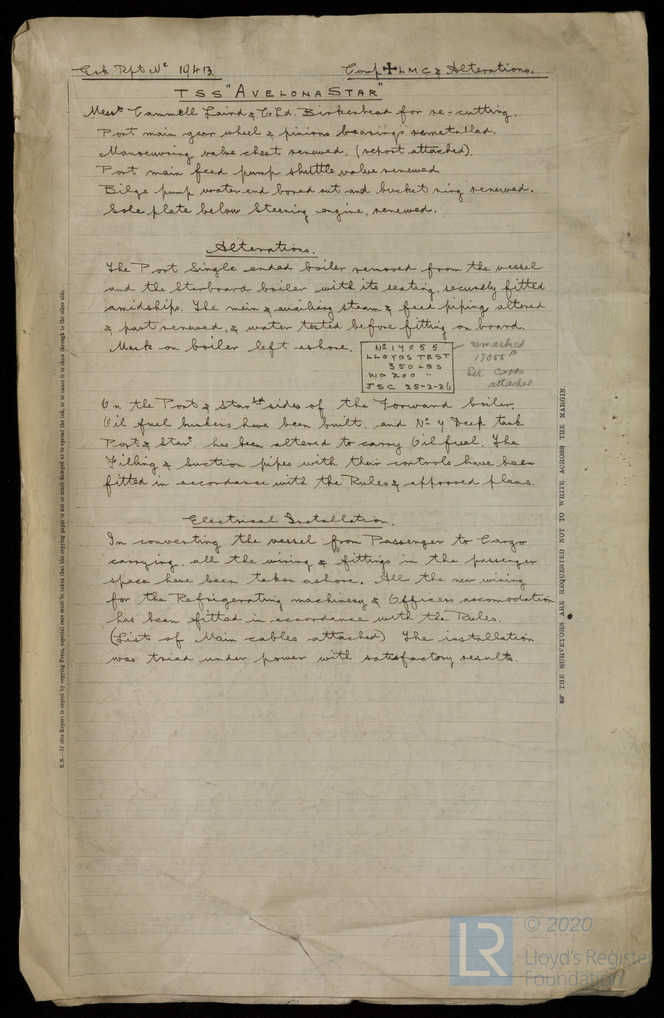 Gsk Rpt Nº 19413. Comp ✠ LMC & Alterations.
TSS "AVELONA STAR"
Messrs Cammell Laird & Co Ld. Birkenhead for re-cutting.
Port main gear wheel & pinions bearings remetalled.
Manoeuvring valve chest renewed. (report attached).
Port main feed pump shuttle valve renewed
Bilge pump water end bored out and bucket ring renewed.
Sole plate below Steering engine, renewed.
Alterations.
The Port Single ended boiler removed from the vessel
and the Starboard boiler with its seating, securely fitted
amidships. The main & auxiliary steam & feed piping altered
& part renewed, & water tested before fitting on board.
Mark on boiler left ashore.
Nº 17055
LLOYDS TEST
350 LBS
WP 200 "
JSC 25-2-26
remarked
17055
See
attached
On the Port & Starbd sides of the Forward boiler,
Oil fuel bunkers have been built, and Nº 4 Deep tank
Port & Starb has been altered to carry Oil fuel. The
Filling & Suction pipes with their controls have been
fitted in accordance with the Rules & approved plans.
Electrical Installation.
In converting the vessel from Passenger to Cargo
carrying, all the wiring & fittings in the passenger
space have been taken ashore. All the new wiring
for the Refrigerating machinery & Officers accomodation
has been fitted in accordance with the Rules.
(Lists of Main cables attached) The installation
was tried under power with satisfactory results.
N.B.—If this Report is copied by copying Press, especial care must be taken that the copying paper is not so much damped as to spread the ink, or to cause it to show through to the other side.
THE SURVEYORS ARE REQUESTED NOT TO WRITE ACROSS THE MARGIN.
LR
© 2020
Lloyd's Register
Foundation